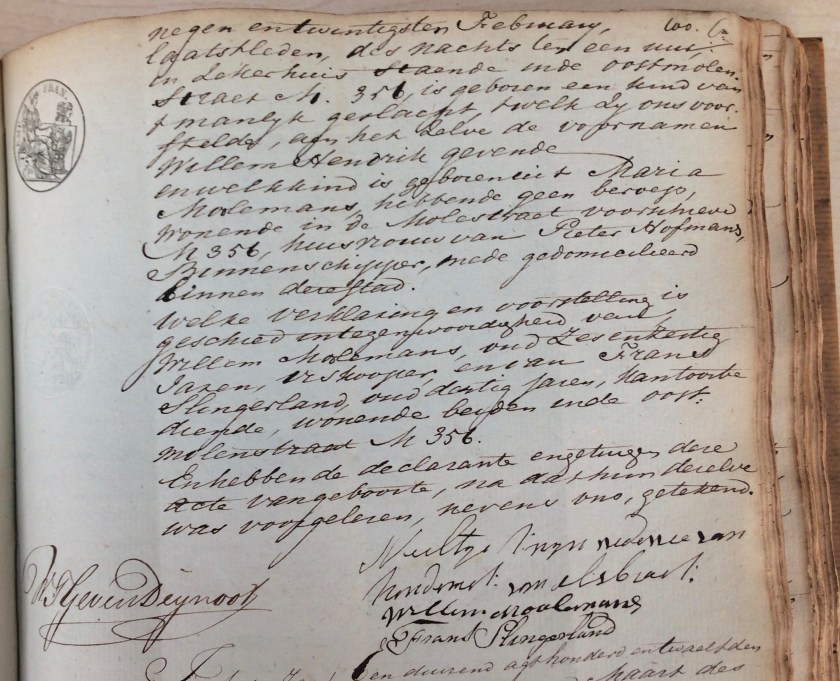 negen en twintigsten February,
laatstleden, des nachts ten een uur,
in dekerhuis staende inde oostmolen-
Straet N. 356, is geboren een kind van
t manlyk geslacht, twelk zy ons voor-
stelde, aan het zelve de voornamen
Willem Hendrik gevende
en welk kind is geboren uit Maria
Molemans, hebbende geen beroep,
wonende in de Molestraet voorschreve
N 356, huisvrouw van Pieter Hofmans,
Binnenschipper, mede gedomicilieerd
binnen dere Stad.
Welke verklaring en voorstelling is
geschied in tegenwoordigheid van
Willem Molemans, oud Zes en Zestig
Jaren, Viskooper, en van Frans
Slingerland, oud dertig Jaren, Kantoorbe
diende, wonende beyden inde oost:
molenstraat N 356.
En hebben de declarante en getuigen dere
acte van geboorte, na dat hun derelve
was voorgeleren, nevens ons, getekend.
Neeltje van
Gevers Deynoot
Willem Moolemans
Frans Slingerland
en duizend agt honderd en twaelfden
Maart des